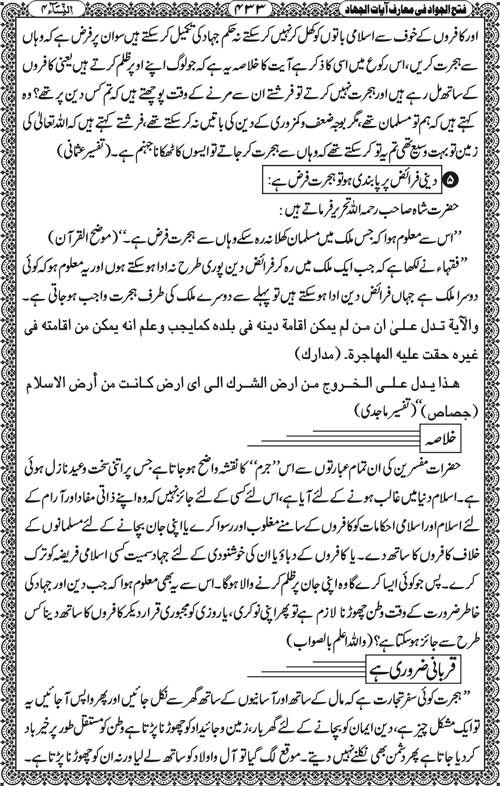 فتح الجواد فی معارف آیات الجهاد ۴۳۳ النِّسَاء ۴
اور کافروں کے خوف سے اسلامی باتوں کو کھل کر نہیں کر سکتے نہ حکم جہاد کی تکمیل کر سکتے ہیں سو ان پر فرض ہے کہ وہاں
سے ہجرت کریں، اس رکوع میں اسی کا ذکر ہے آیت کا خلاصہ یہ ہے کہ جو لوگ اپنے اوپر ظلم کرتے ہیں یعنی کافروں
کے ساتھ مل رہے ہیں اور ہجرت نہیں کرتے تو فرشتے ان سے مرنے کے وقت پوچھتے ہیں کہ تم کس دین پر تھے؟ وہ
کہتے ہیں کہ ہم تو مسلمان تھے، مگر بوجہ ضعف و کمزوری کے دین کی باتیں نہ کر سکتے تھے، فرشتے کہتے ہیں کہ اللہ تعالیٰ کی
زمین تو بہت وسیع تھی تم یہ تو کر سکتے تھے کہ وہاں سے ہجرت کر جاتے تو ایسوں کا ٹھکانا جہنم ہے۔ (تفسیر عثمانی)
۵ دینی فرائض پر پابندی ہو تو ہجرت فرض ہے:
حضرت شاہ صاحب رحمہ اللہ تحریر فرماتے ہیں:
’’اس سے معلوم ہوا کہ جس ملک میں مسلمان کھلا نہ رہ سکے وہاں سے ہجرت فرض ہے۔‘‘ (موضح القرآن)
’’فقہاء نے لکھا ہے کہ جب ایک ملک میں رہ کر فرائض دین پوری طرح نہ ادا ہو سکتے ہوں اور یہ معلوم ہو کہ کوئی
دوسرا ملک ہے جہاں فرائض دین ادا ہو سکتے ہیں تو پہلے سے دوسرے ملک کی طرف ہجرت واجب ہو جاتی ہے۔
والآیة تدل علیٰ ان من لم یمکن اقامة دینه فی بلده کمایجب وعلم انه یمکن من اقامته فی
غیره حقت علیه المهاجرة۔ (مدارک)
هذا یدل علی الخروج من ارض الشرك الی ای ارض کانت من أرض الاسلام
(جصاص)‘‘ (تفسیر ماجدی)
خلاصہ
حضرات مفسرین کی ان تمام عبارتوں سے اس ’’جرم‘‘ کا نقشہ واضح ہو جاتا ہے جس پر اتنی سخت وعید نازل ہوئی
ہے۔ اسلام دنیا میں غالب ہونے کے لئے آیا ہے، اس لئے کسی کے لئے جائز نہیں کہ وہ اپنے ذاتی مفاد اور آرام کے
لئے اسلام اور اسلامی احکامات کو کافروں کے سامنے مغلوب اور رسوا کرے یا اپنی جان بچانے کے لئے مسلمانوں کے
خلاف کافروں کا ساتھ دے۔ یا کافروں کے دباؤ یا ان کی خوشنودی کے لئے جہاد سمیت کسی اسلامی فریضہ کو ترک
کرے۔ پس جو کوئی ایسا کرے گا وہ اپنی جان پر ظلم کرنے والا ہوگا۔ اس سے یہ بھی معلوم ہوا کہ جب دین اور جہاد کی
خاطر ضرورت کے وقت وطن چھوڑنا لازم ہے تو پھر اپنی نوکری، یا روزی کو مجبوری قرار دیکر کافروں کا ساتھ دینا کس
طرح سے جائز ہو سکتا ہے؟ (واللہ اعلم بالصواب)
قربانی ضروری ہے
’’ہجرت کوئی سفر تجارت ہے کہ مال کے ساتھ اور آسانیوں کے ساتھ گھر سے نکل جائیں اور پھر واپس آ جائیں یہ
تو ایک مشکل چیز ہے، دین ایمان کو بچانے کے لئے گھر بار، زمین و جائیداد کو چھوڑنا پڑتا ہے وطن کو مستقل طور پر خیر باد
کر دیا جاتا ہے پھر دشمن بھی نکلنے نہیں دیتے۔ موقع لگ گیا تو آل واولاد کو ساتھ لے لیا ورنہ ان کو چھوڑنا پڑتا ہے۔